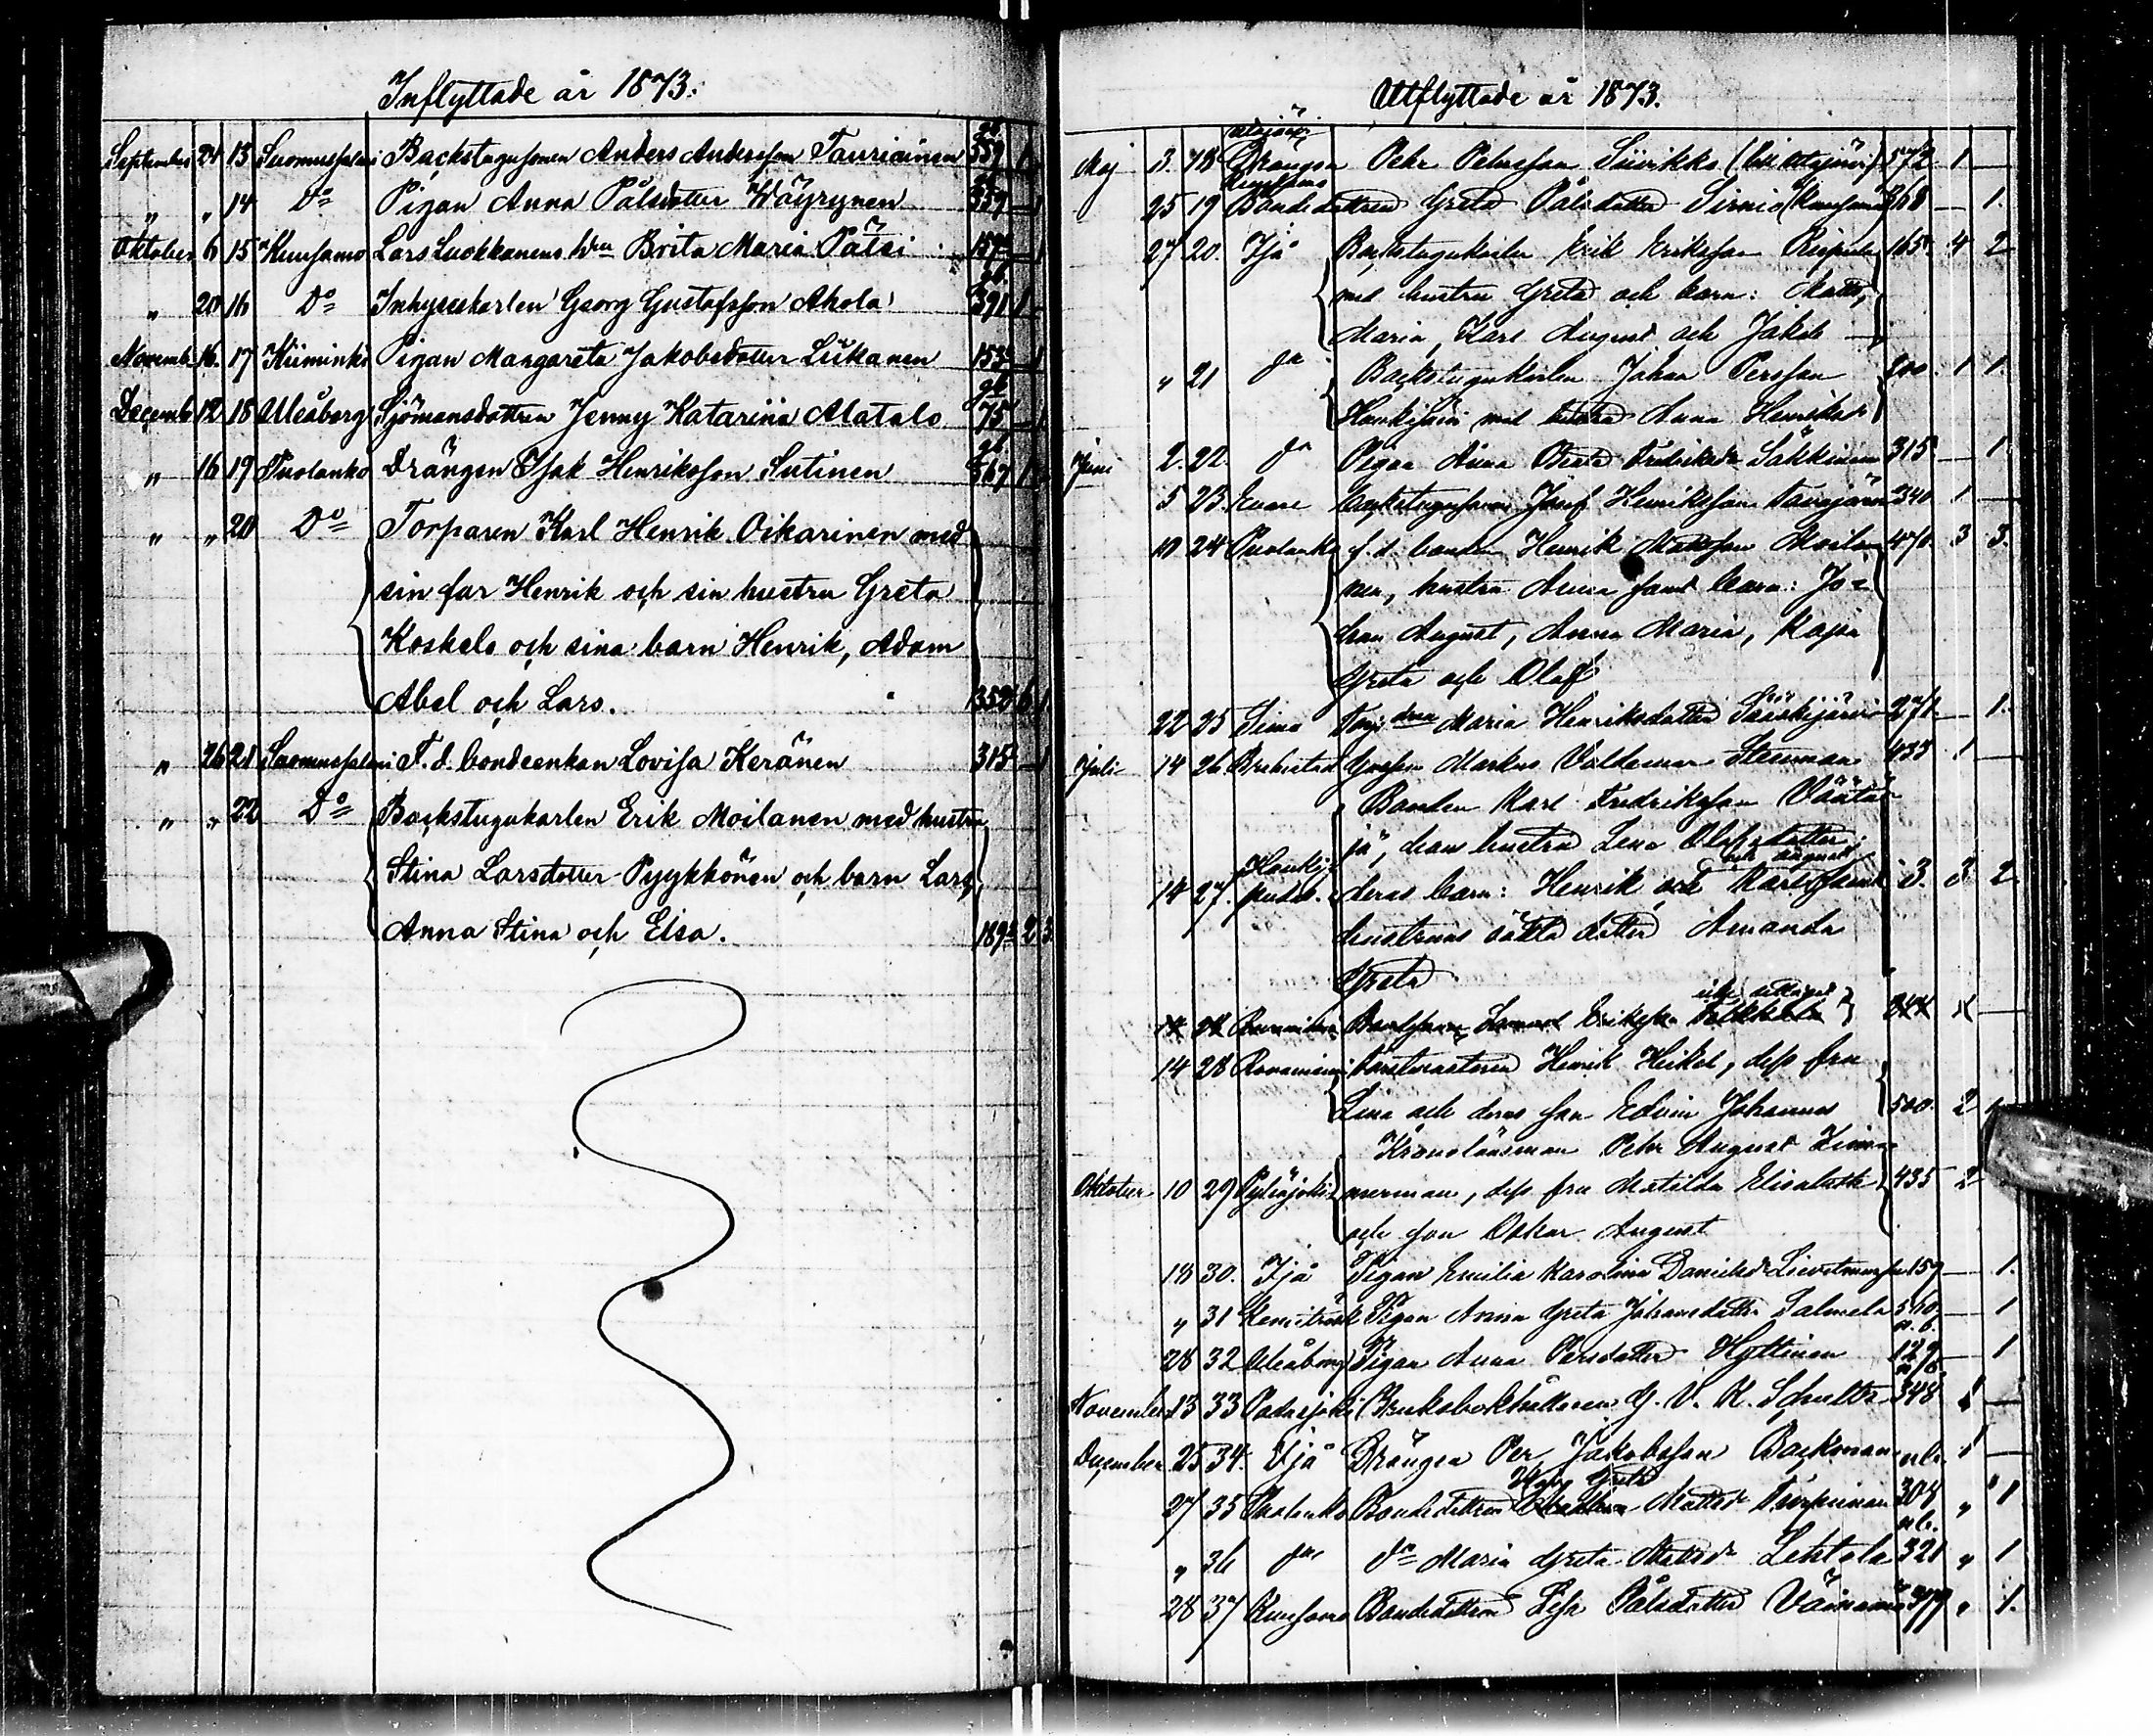 Inflyttade år 1873.
September 24 13 Suomussalmi Backstugusonen Anders Andersson Tauriainen 359 1 —
" " 14 Do Pigan Anna Pålsdotter Wäyrynen 359 — 1
Oktober 6 15 Kuusamo Lars Luokkanens Brita Maria Pätsi 159 — 1
" 20 16 Do Inhysekarlen Georg Gustafsson Ahola 391 1
Novemb. 16. 17 Kiiminki Pigan Margareta Jakobsdotter Liikanen 153 — 1
Decemb. 12 18 Uleåborg Sjömansdottren Jenny Katarina Matala 75 — 1
" 16 19 Puolanko Drängen Isak Henriksson Sutinen 567 1
" " 20 Do Torparen Karl Henrik Oikarinen med
sin far Henrik och sin hustru Greta
Koskelo och sina barn Henrik, Adam
Abel och Lars. 352 6 1
" 26 21 Suomussalmi F. d. bondeenkan Lovisa Keränen 315 — 1
" " 22 Do Backstugukarlen Erik Moilanen med hustru
Stina Larsdotter Pyykkönen och barn Lars,
Anna Stina och Elsa. 189 2 3
Utflyttade år 1873.
Maj 3. 18 Drängen Petter Pettersson Siirikka 572 1 —
Kuusamo
25 19 Bondedottren Greta Pålsdotter Sirniö (Kuusamo) 368 — 1.
27 20. Ijå Backstugukarlen Erik Eriksson 165 4 2
med hustru Greta och barn: Matts,
Maria, Karl August och Jakob
" 21 do Backstugukarlen Johan Persson 200 1 1
med hustru Anna Henriksdr
Juni 2. 22. do Pigan Anna Beata Fredriksdr Säkkinen 315 — 1
5 23. Enare Backstugusonen Josef Henriksson 340 1 —
10 24 Puolanko f. d. bonden Henrik Mattsson Moila- 470 3 3.
nen, hustru Anna samt barn: Jo-
han August, Anna Maria, Kajsa
Greta och Olof
22 25 Simo Maria Henriksdotter Sääskijärvi 271 — 1.
Juli 14 26 Brahestad Gossen Markus Valdemar Stenman 433 1 —
Bonden Karl Fredriksson Väätä-
jä, hans hustru Lena Olofsdotter,
och August
14 27. Haukipudas. deras barn: Henrik och Karl samt 3. 3 2
hustruns oäkta dotter Amanda
Greta
14 28 Rovaniemi Henrik Heikel, dess fru
Lina och deras son Edvin Johannes 500. 2
Kronolänsman Petter August Zim-
Oktober 10 29 Pyhäjoki merman, dess fru Matilda Elisabeth 435 2
och son Oskar August
18 30. Ijå Pigan Emilia Karolina Danielsdr 159 — 1.
" 31 Kemiträsk Pigan Anna Greta Johansdotter Salmela 560 — 1
28 32 Uleåborg Pigan Anna Persdotter Hyttinen 129 — 1
November 13 33 Padasjoki Bruksbokhållaren G. V. R. Schultz 348 1 —
December 25 34. Ijå Drängen Per Jakobsson Backman 1 —
27 35 Puolanko Bondedottren Greta Mattsdr Turpeinen 308 " 1
" 36 do do Maria Greta Mattsdr Lehtola 321 " 1
28 37 Kuusamo Bondedottren Lisa Pålsdotter 379 " 1.